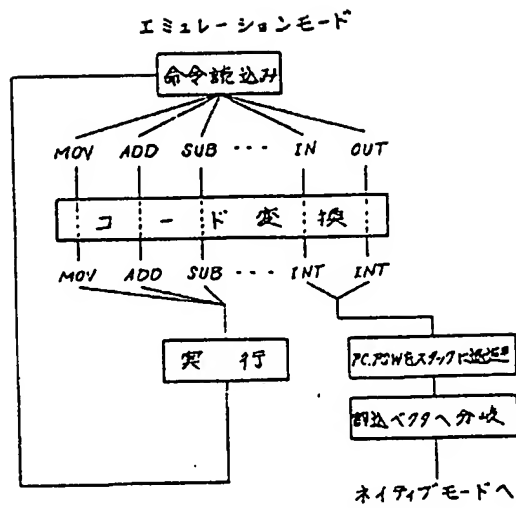 エミュレーションモード
命令読込み
MOV ADD SUB ... IN OUT
コード変換
MOV ADD SUB ... INT INT
実行
PC.PSWをスタックに退避
割込ベクタへ分岐
ネイティブモードへ